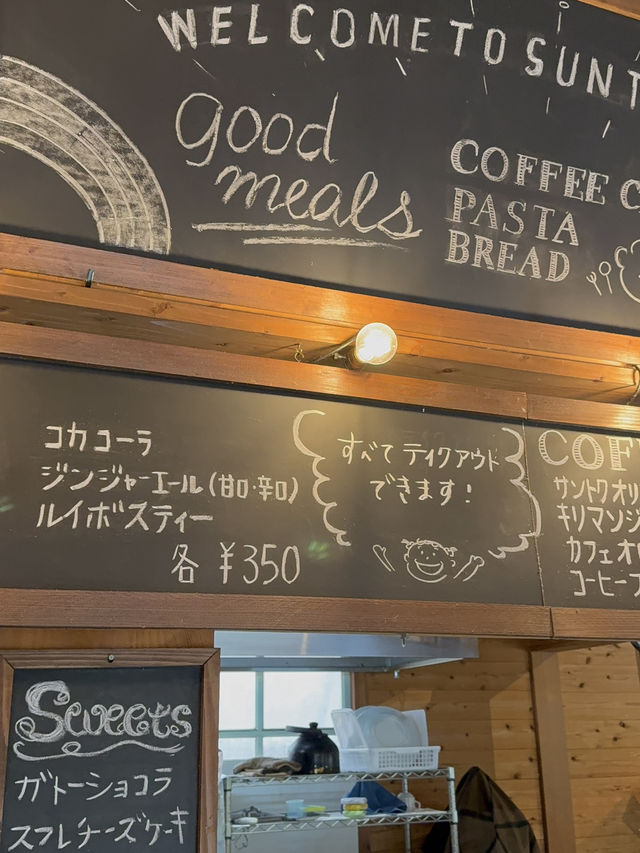 WELCOME TO SUN T
good
meals
COFFEE C
PASTA
BREAD
コカコーラ
ジンジャーエール(甘口・辛口)
ルイボスティー
各 ¥350
すべて テイクアウト
できます!
COF
サントクオリ
キリマンジ
カフェオ
コーヒーフ
Sweets
ガトーショコラ
スフレチーズケーキ